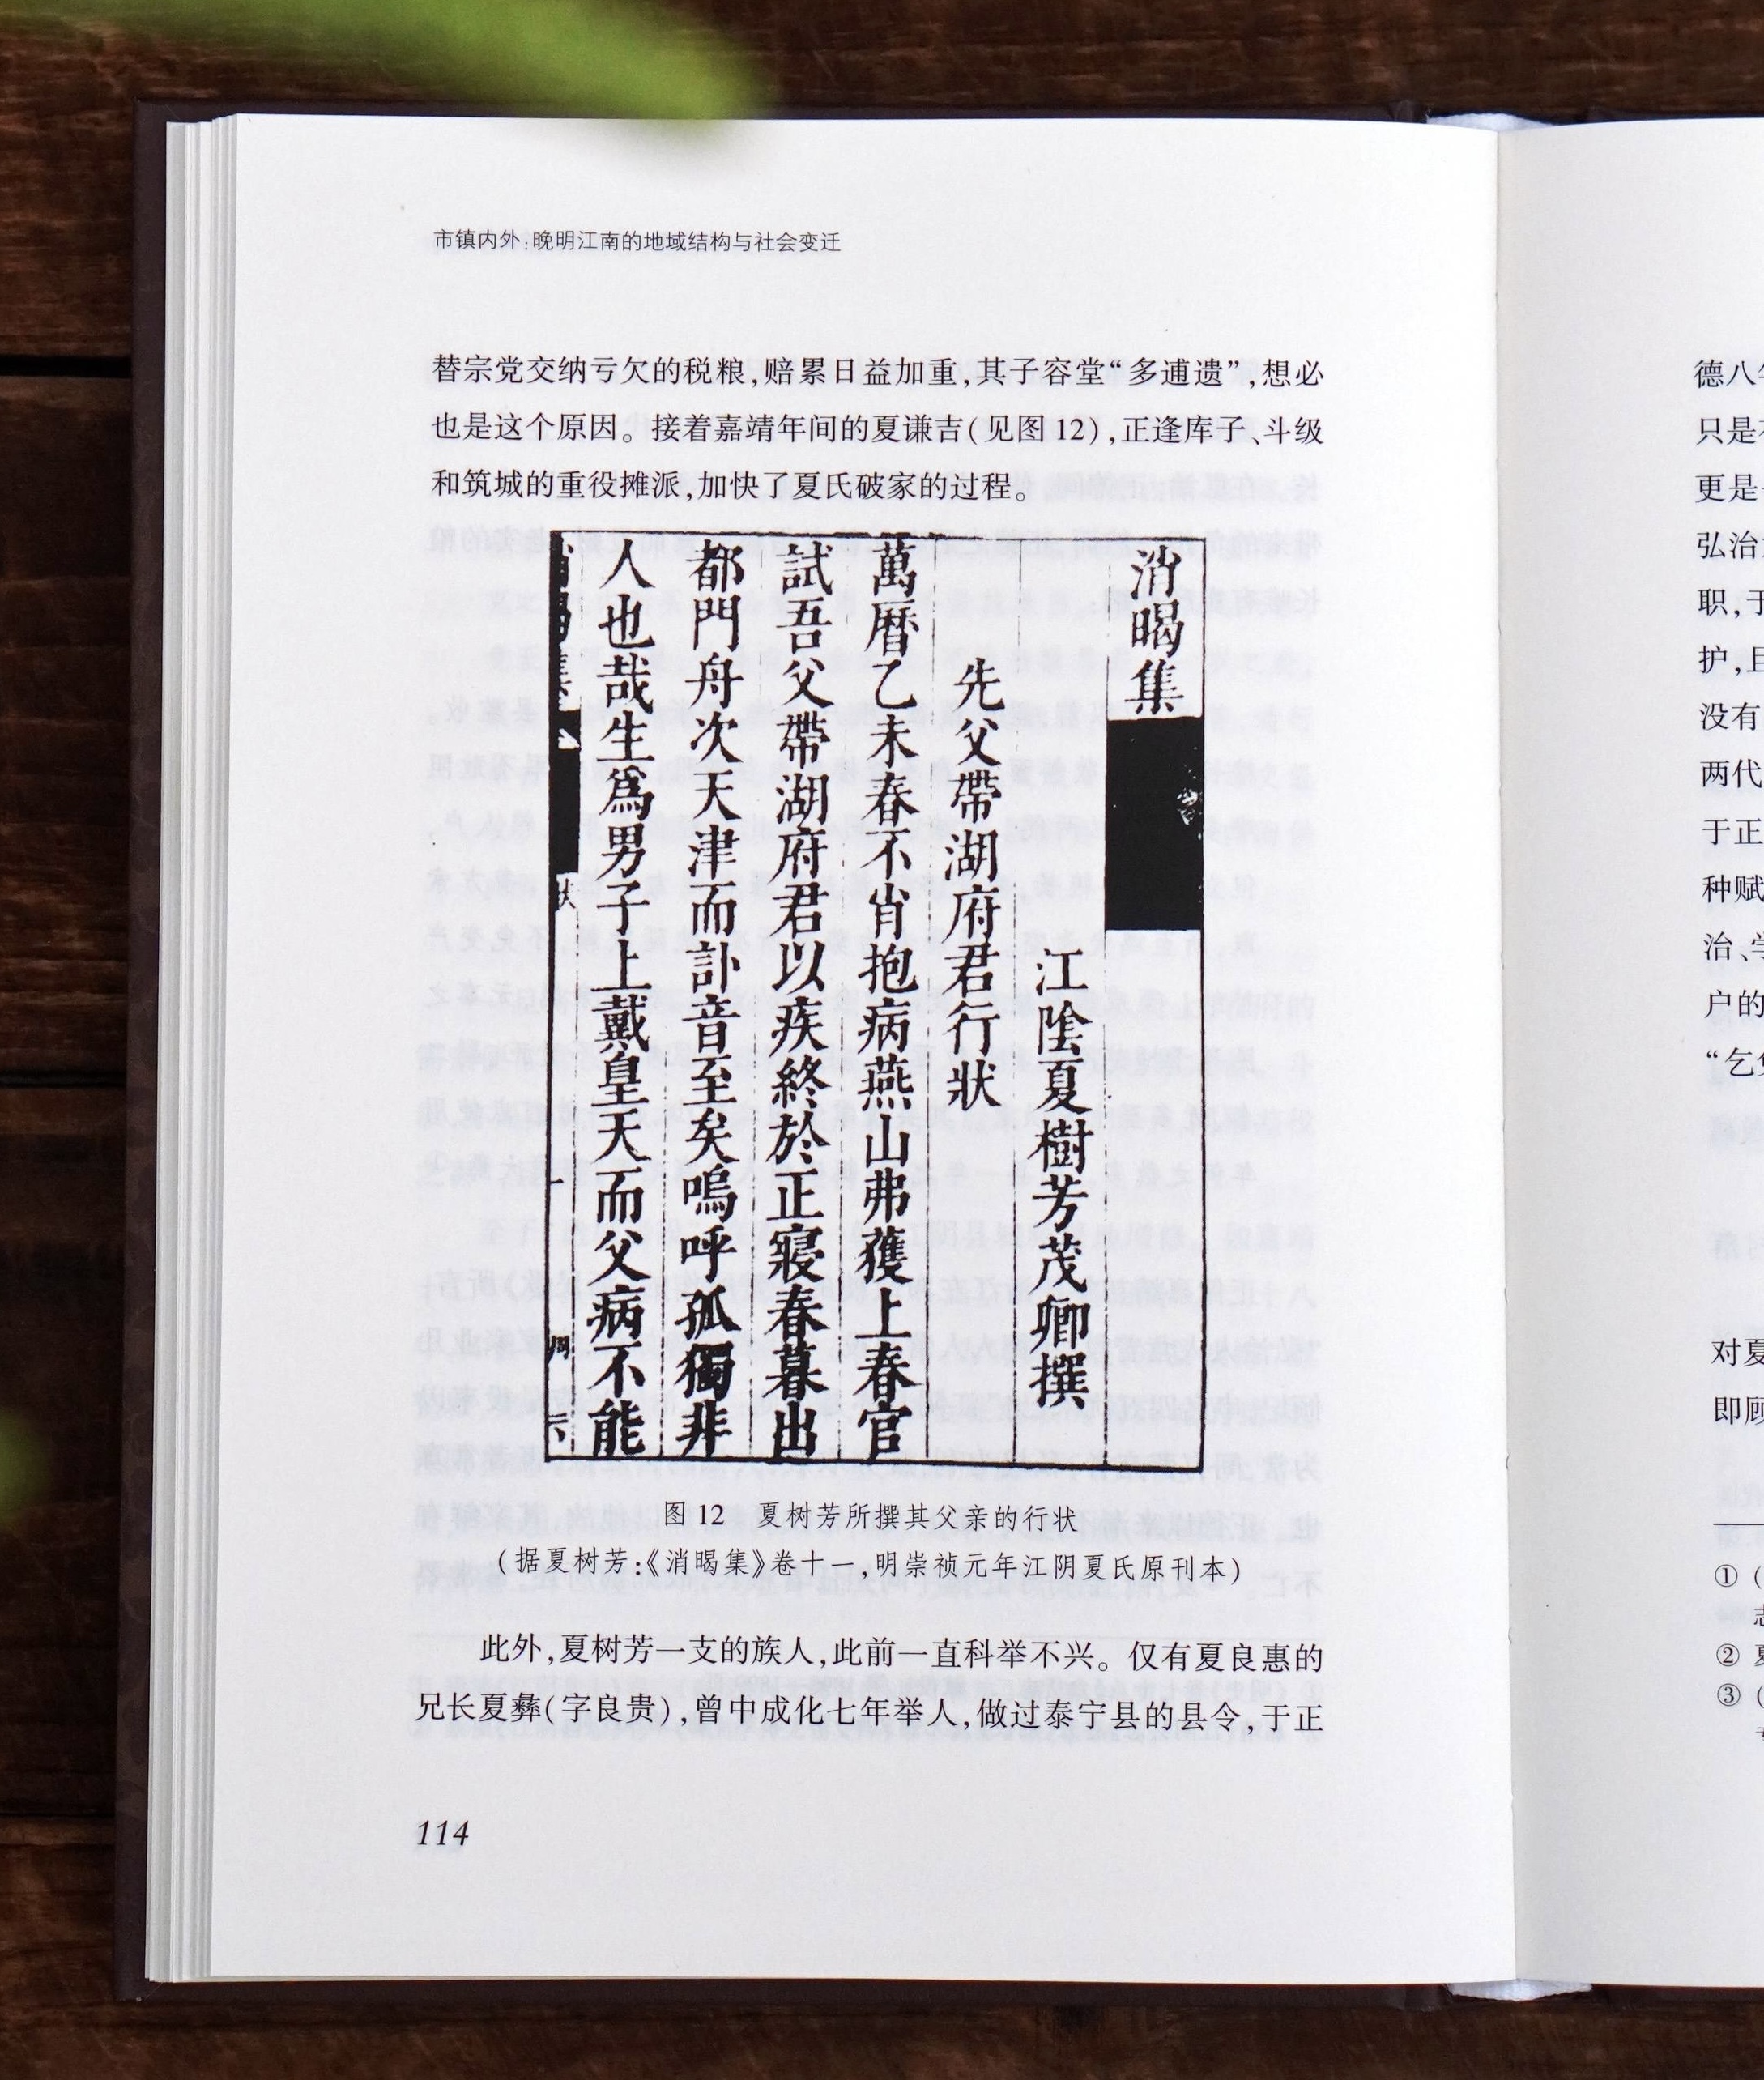 市镇内外:晚明江南的地域结构与社会变迁
替宗党交纳亏欠的税粮,赔累日益加重,其子容堂“多逋遗”,想必
也是这个原因。接着嘉靖年间的夏谦吉(见图12),正逢库子、斗级
和筑城的重役摊派,加快了夏氏破家的过程。
消暍集
江陰夏樹芳茂卿撰
先父帶湖府君行狀
萬曆乙未春不肖抱病燕山弗獲上春官
試吾父帶湖府君以疾終於正寢春暮出
都門舟次天津而訃音至矣嗚呼孤獨非
人也哉生爲男子上戴皇天而父病不能
图12 夏树芳所撰其父亲的行状
(据夏树芳:《消暍集》卷十一,明崇祯元年江阴夏氏原刊本)
此外,夏树芳一支的族人,此前一直科举不兴。仅有夏良惠的
兄长夏彝(字良贵),曾中成化七年举人,做过泰宁县的县令,于正
114
德八
只是
更是
弘治
职,于
护,且
没有
两代
于正
种赋
治、学
户的
“乞
对夏
即顾
① (
② 夏
③ (